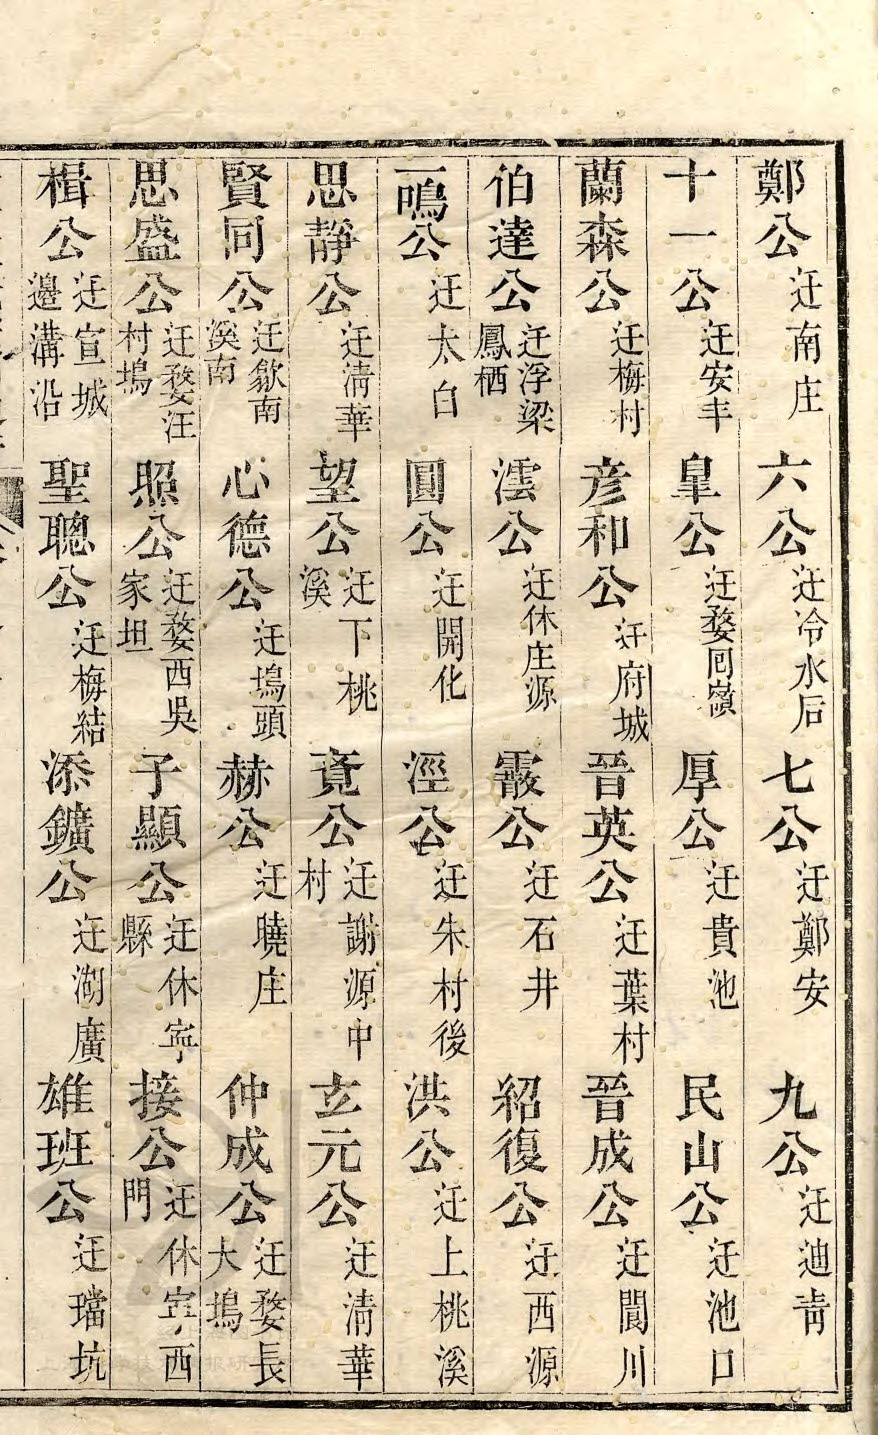 鄭公迁南庄　六公迁冷水后　七公迁鄭安　九公迁迪靑
十一公迁安丰　皐公迁婺囘嶺　厚公迁貴池　民山公迁池口
蘭森公迁梅村　彦和公迁府城　晉英公迁葉村　晉成公迁閬川
伯達公迁浮梁鳳栖　澐公迁休庄源　霰公迁石井　紹復公迁西源
一鳴公迁太白　圓公迁開化　涇公迁朱村後　洪公迁上桃溪
思靜公迁清華　望公迁下桃溪　公迁謝源中村　玄元公迁清華
賢同公迁歙南溪南　心德公迁塢頭　赫公迁曉庄　仲成公迁婺長大塢
思盛公迁婺汪村塢　照公迁婺西吳家坦　子顯公迁休寜縣　接公迁休寜西門
楫公迁宣城邊溝沿　聖聰公迁梅結　添鑛公迁湖廣　雄班公迁璫坑